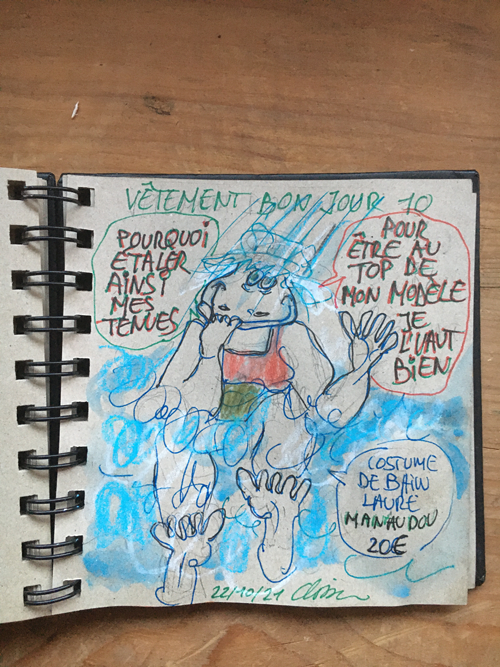 VÊTEMENT BON JOUR 10
POURQUOI
ETALER
AINSI
MES
TENUES
POUR
ÊTRE AU
TOP DE
MON MODÈLE
JE
L'VAUT
BIEN
COSTUME
DE BAIN
LAURE
MANAUDOU
20€
22/10/21